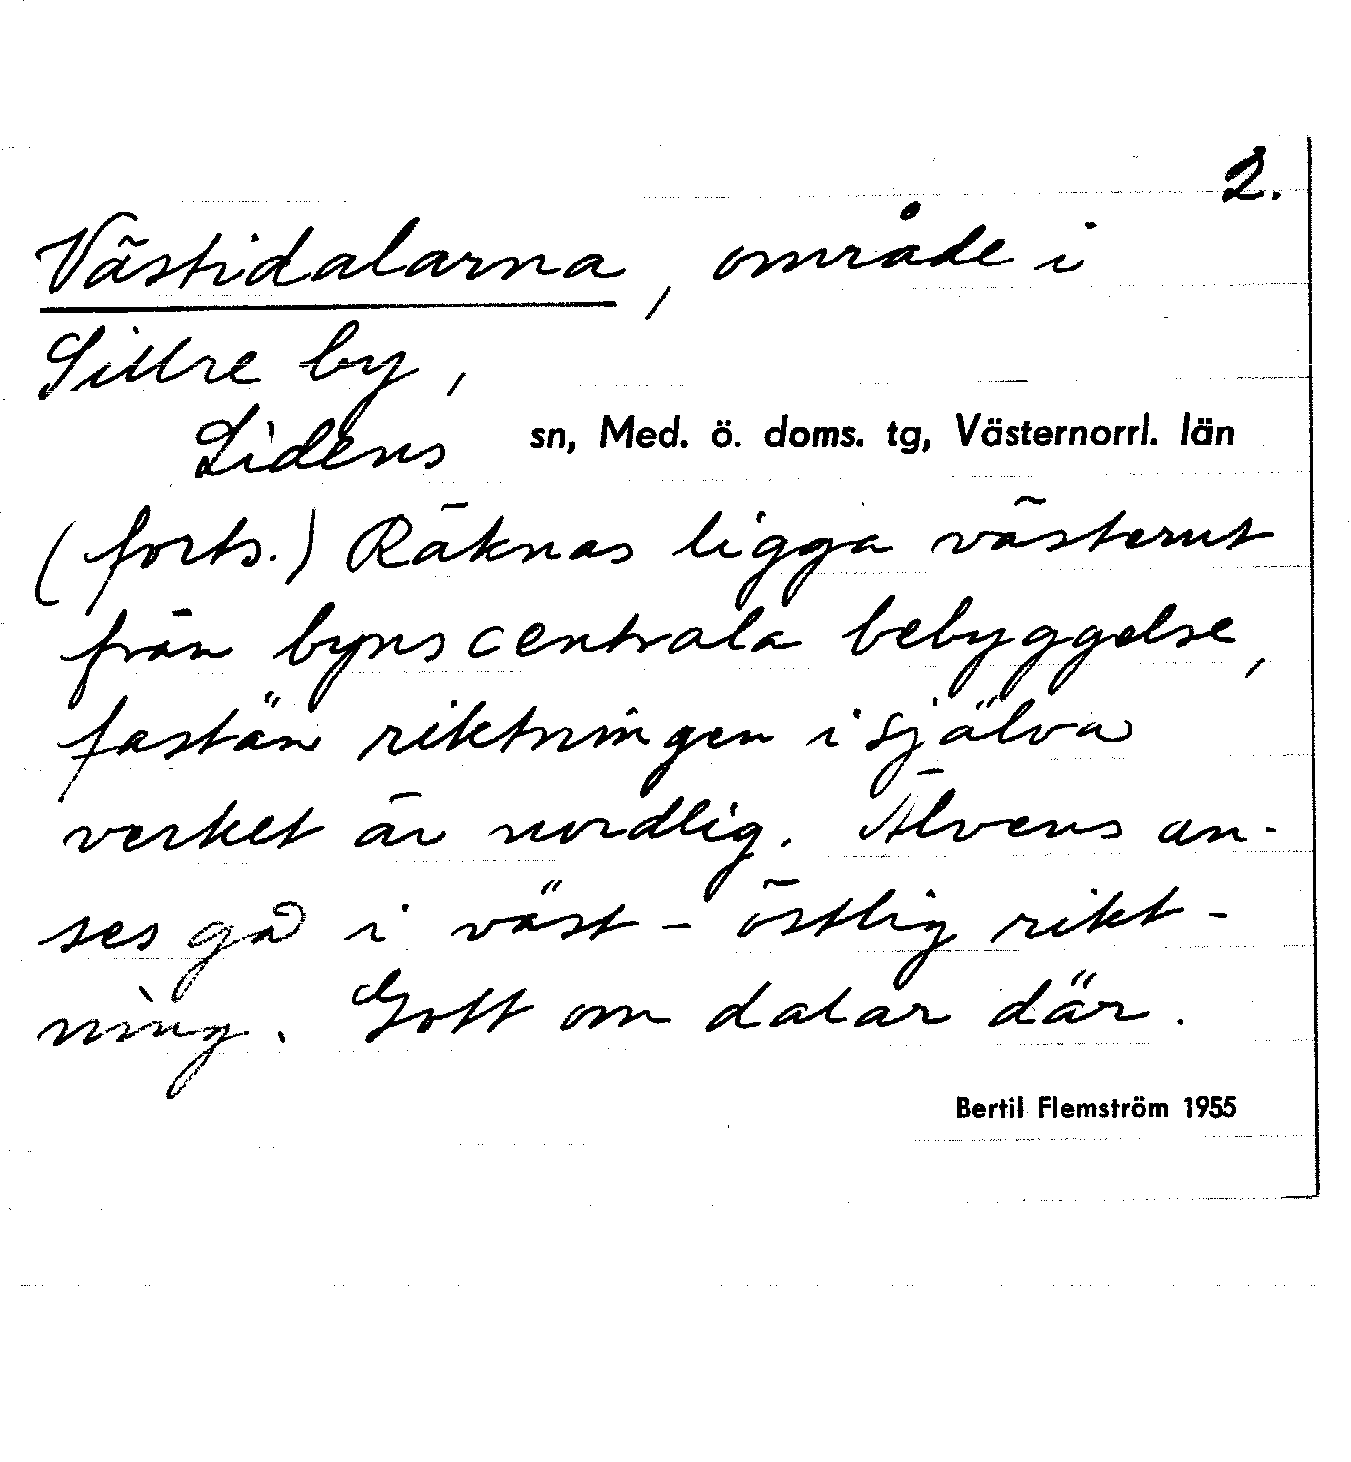 2.
Västidalarna, område i
Sillre by,
Lidens sn, Med. ö. doms. tg, Västernorrl. län
(forts.) Räknas ligga västerut
från byns centrala bebyggelse,
fastän riktningen i själva
verket är nordlig. Älvens an-
ses gå i väst-östlig rikt-
ning. Gott om dalar där.
Bertil Flemström 1955